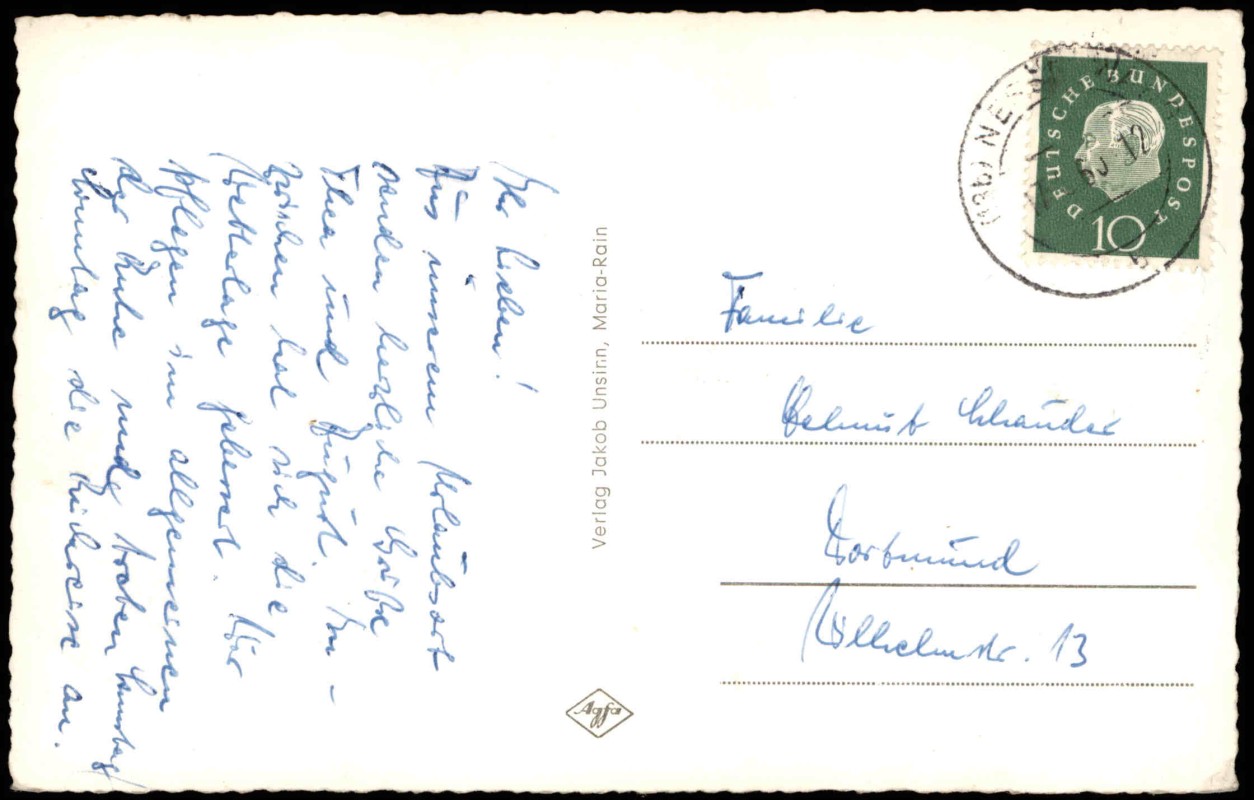 Ihr Lieben!
Aus unserem Urlaubsort
senden herzliche Grüße
Thea und August. In-
zwischen hat sich die
Wetterlage gebessert. Wir
pflegen im allgemeinen
der Ruhe und treten Samstag/
Sonntag die Rückreise an.
Verlag Jakob Unsinn, Maria-Rain
Agfa
DEUTSCHE BUNDESPOST
10
NESS
Familie
Helmut
Dortmund
Wilhelmstr. 13